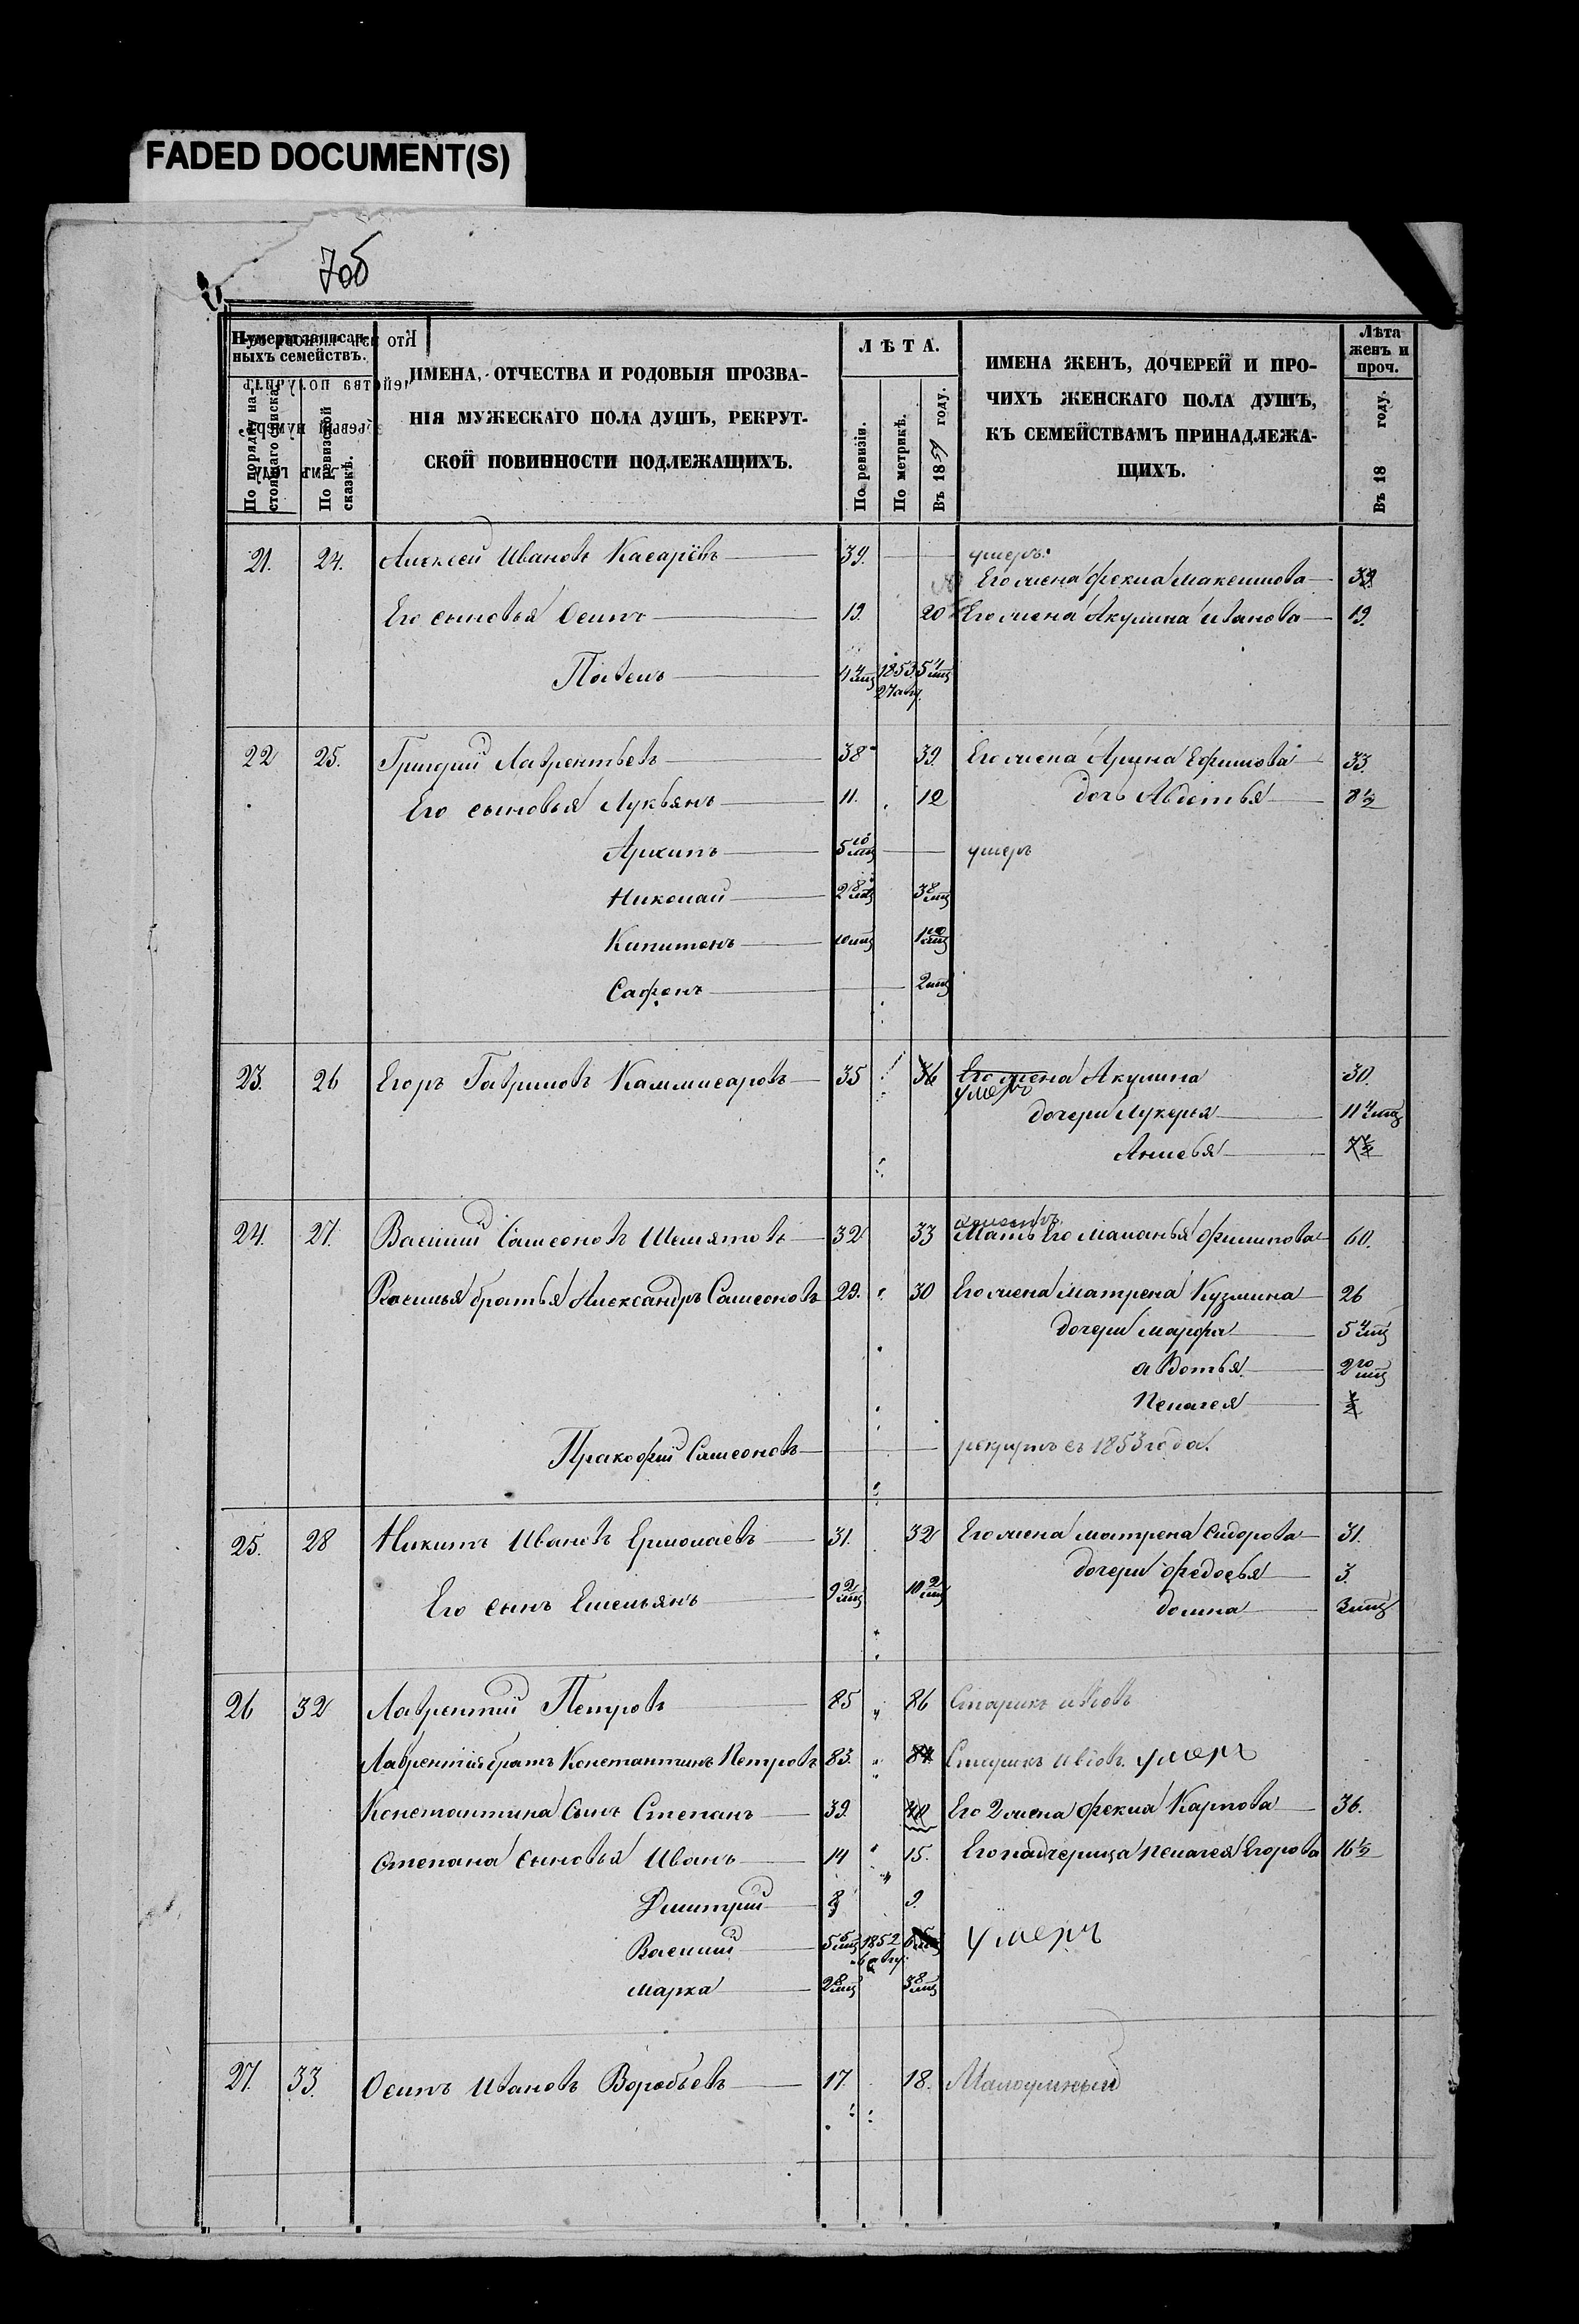 FADED DOCUMENT(S)
70б
Нумеры записанныхъ семействъ.
По порядку настоящаго списка.
По ревизской сказкѣ.
ИМЕНА, ОТЧЕСТВА И РОДОВЫЯ ПРОЗВА-
НІЯ МУЖЕСКАГО ПОЛА ДУШЪ, РЕКРУТ-
СКОЙ ПОВИННОСТИ ПОДЛЕЖАЩИХЪ.
ЛѢТА.
По ревизіи.
По метрикѣ.
Въ 1859 году.
ИМЕНА ЖЕНЪ, ДОЧЕРЕЙ И ПРО-
ЧИХЪ ЖЕНСКАГО ПОЛА ДУШЪ,
КЪ СЕМЕЙСТВАМЪ ПРИНАДЛЕЖА-
ЩИХЪ.
Лѣта женъ и проч.
Въ 18 году.
21. 24. Алексей Ивановъ Касарёвъ 39. умеръ.
Его жена Фекла Максимова 39.
Его сыновья Осипъ 19. 20 Его жена Акулина Иванова 19.
Павелъ 4 4 мц 1853 27 авг. 5 4 мц
22 25. Григорий Лаврентьевъ 38 39. Его жена Арина Ефимова 33.
Его сыновья Лукьянъ 11. 12 дочь Авдотья 8 1/2
Архипъ 5 10 мц умеръ
Николай 2 8 мц 3 8 мц
Капитонъ 10 мц 1 10 мц
Сафронъ 2 мц
23. 26 Егоръ Гавриловъ Каммисаровъ 35 36 Его жена Акулина 30.
умеръ
дочери Лукерья 11 4 мц
Анисья 7 1/2
24. 27. Василий Самсоновъ Шемятовъ 32 33 Мать Его Маланья Филипова 60.
Василья братья Александръ Самсоновъ 29. 30 Его жена Матрена Кузмина 26
дочери Марфа 5 4 мц
авдотья 2 10 мц
Пелагея 1/2
Пракофий Самсоновъ рекрутъ съ 1853 года.
25. 28 Никитъ Ивановъ Ермолаевъ 31. 32 Его жена матрена Сидорова 31.
дочери Федосья 3.
Его сынъ Емельянъ 9 2 мц 10 2 мц домна 3 мц
26 32 Лаврентий Петровъ 85 86 Старикъ вдовъ
Лаврентія братъ Константинъ Петровъ 83. 84 Старикъ вдовъ. умеръ
Константина Сынъ Степанъ 39. 40 Его 2 жена Фекла Карпова 36.
Степана Сыновья Иванъ 14 15. Его падчерица Пелагея Егорова 16 1/2
Дмитрий 8 9.
Василий 5 5 мц 1852 6 авг. умеръ
Марка 2 8 мц 3 8 мц
27. 33. Осипъ Ивановъ Воробьевъ 17. 18. Малоумный